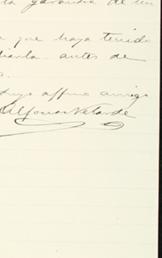 la garantia de un
que haya tenido
antes de
Suyo affmo amigo
Alfonso Velarde